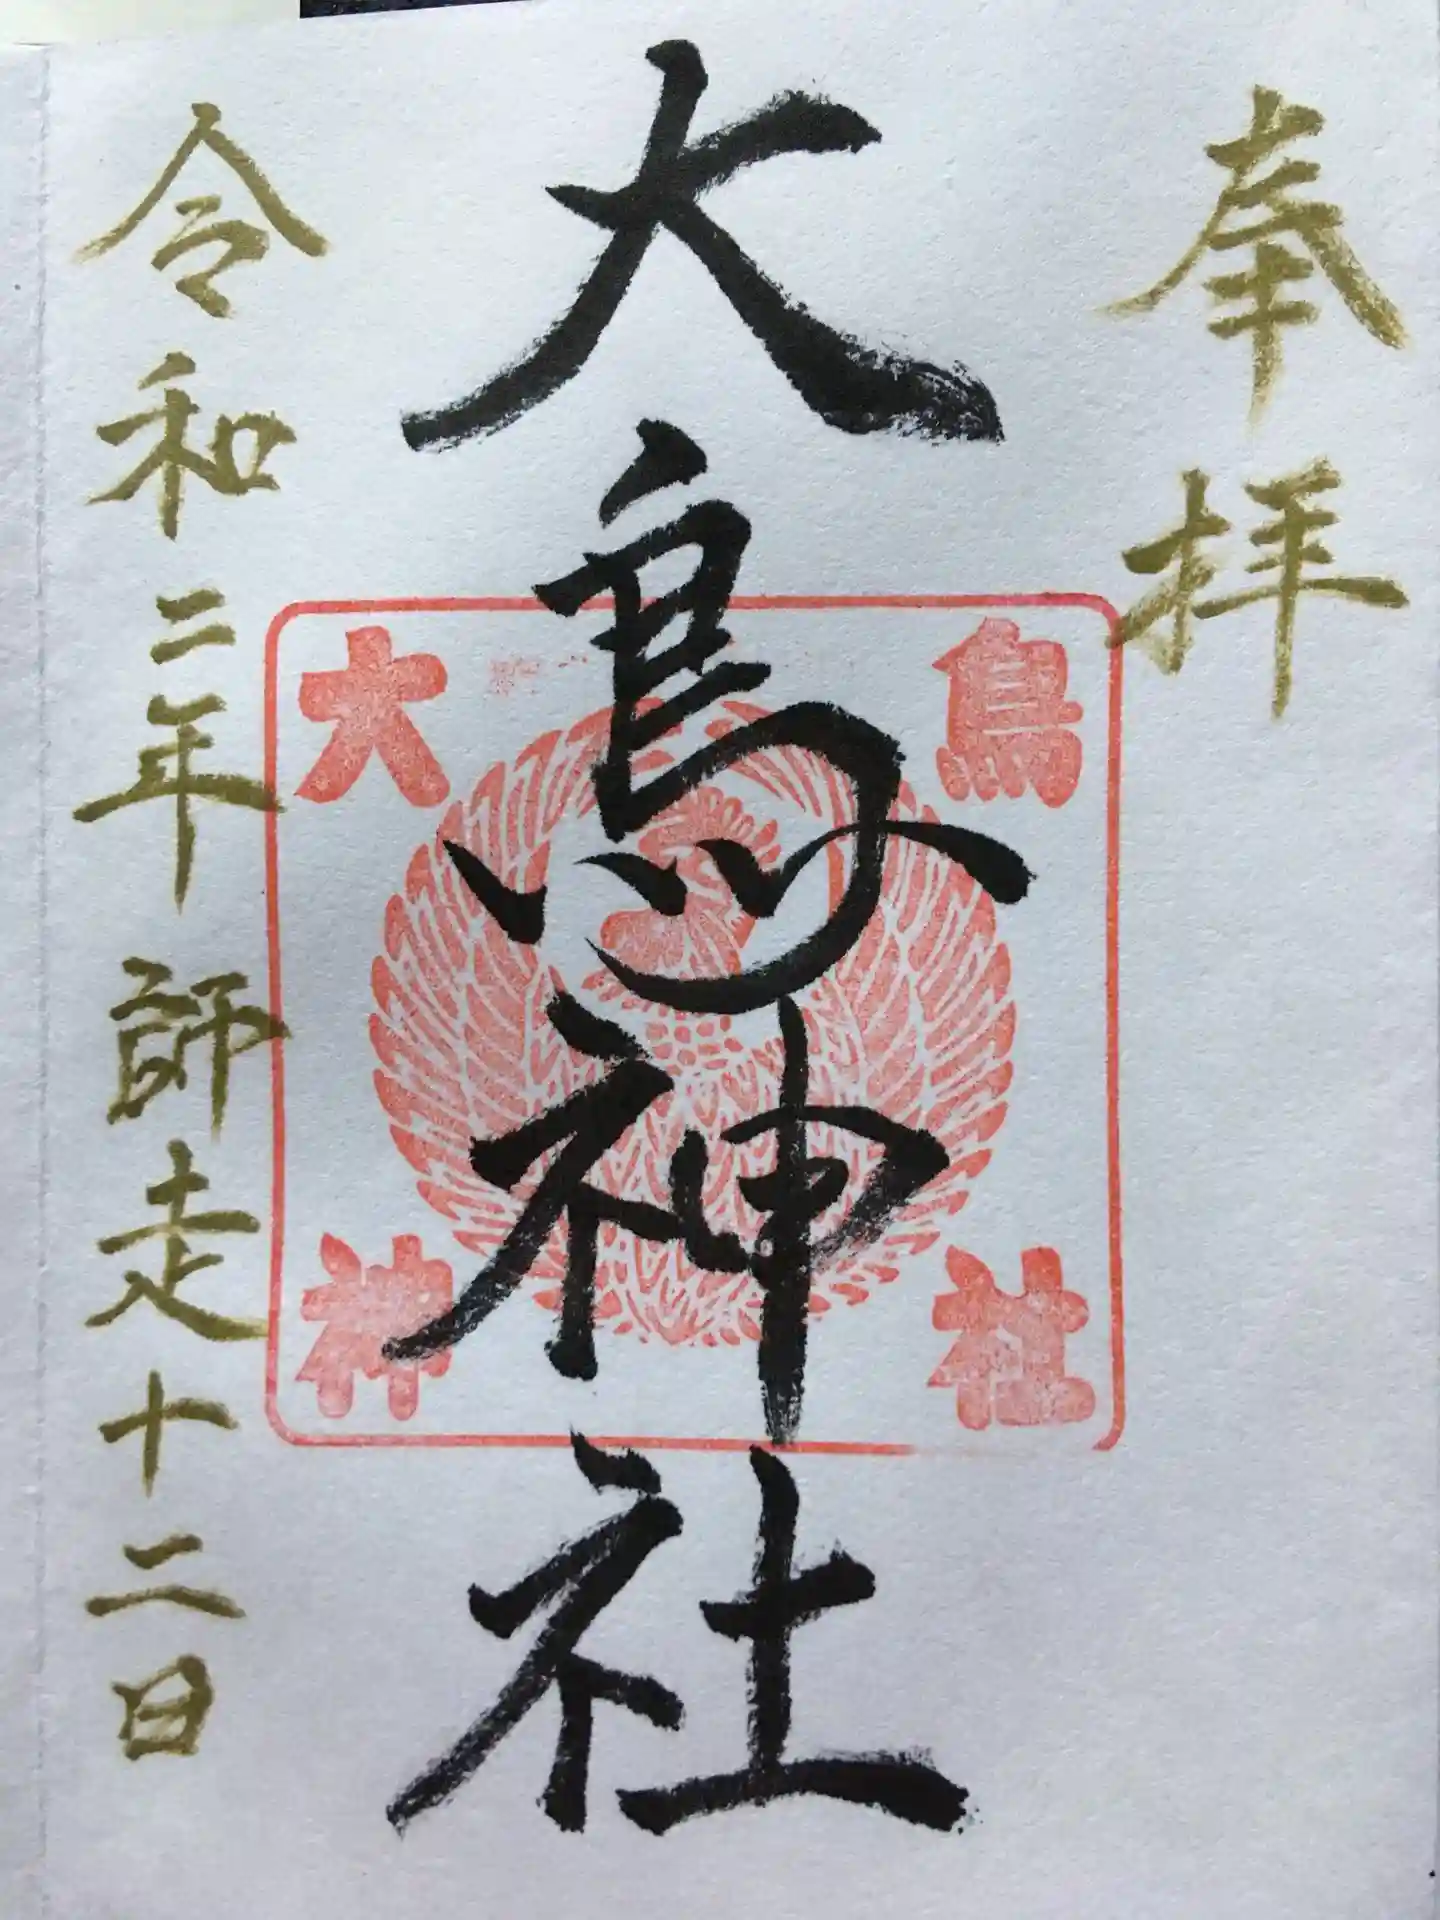 奉拝
大鳥神社
大鳥
神社
令和二年師走十二日